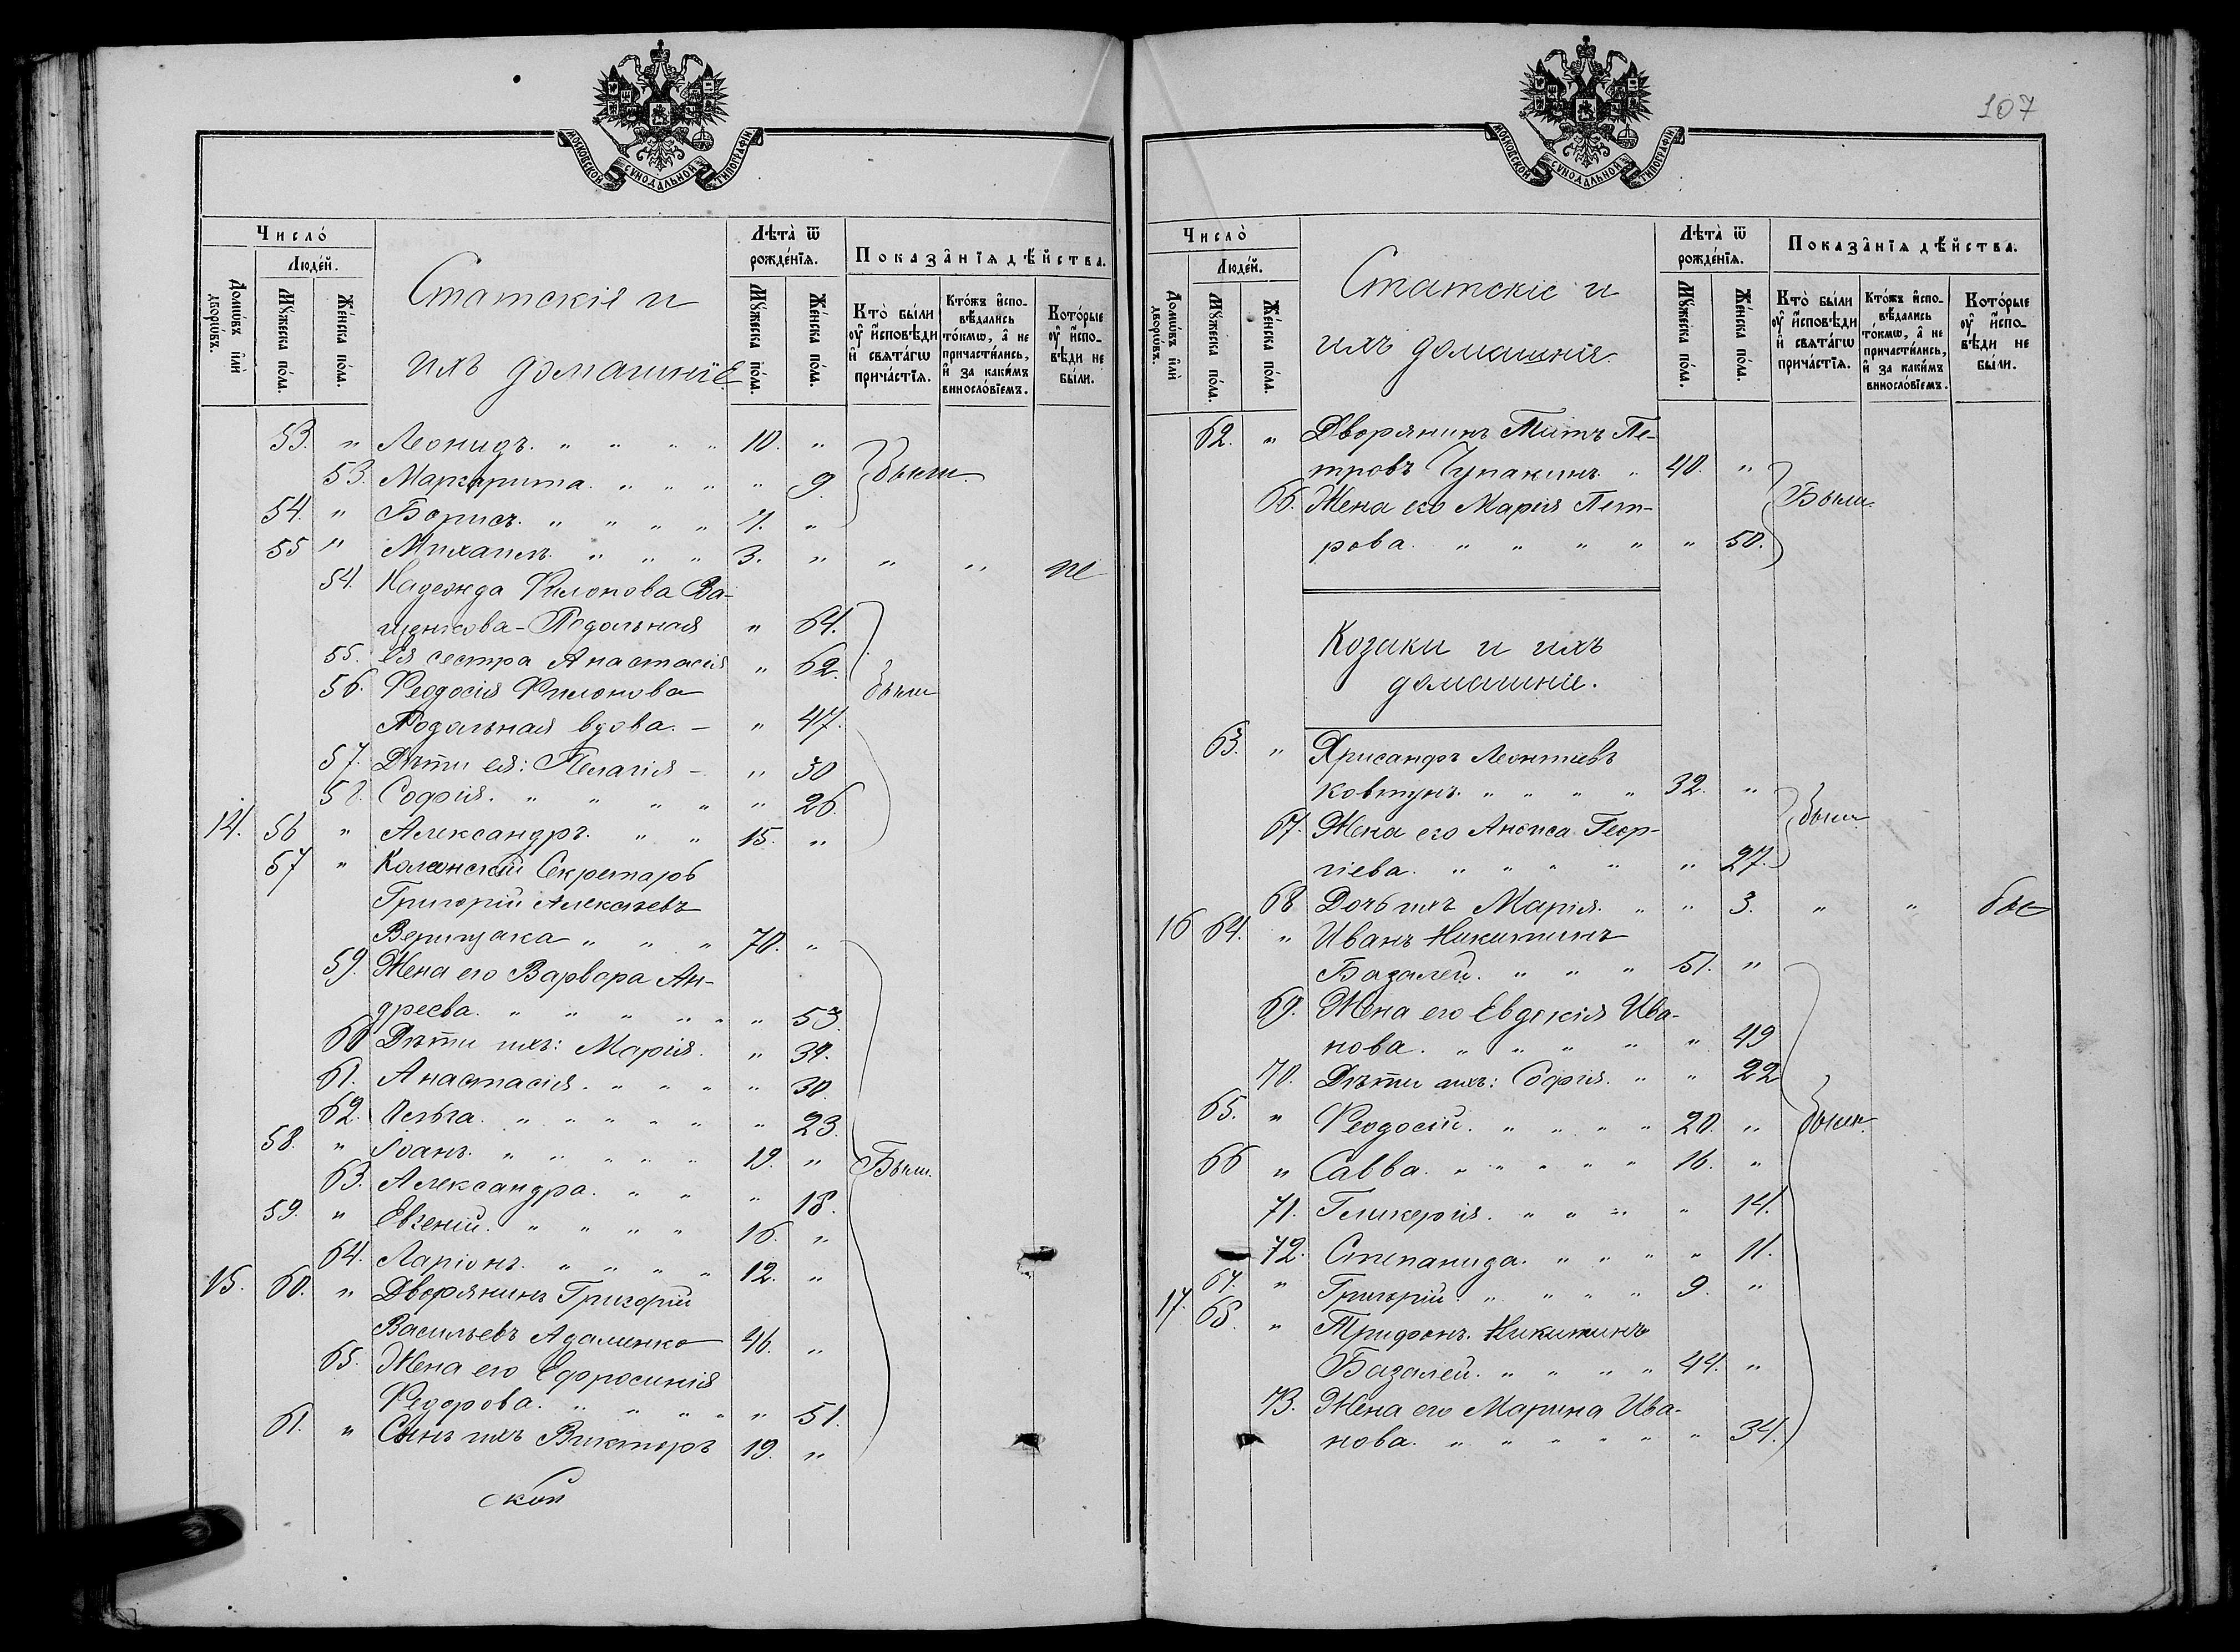 МОСКОВСКОЙ СѴНОДАЛЬНОЙ ТИПОГРАФІИ
Число̀
Люде́й.
Домѡ́въ и҆лѝ дворѡ́въ.
Мꙋ́жеска по́ла.
Же́нска по́ла.
Статскія и
ихъ домашніе
Лѣта̀ ѿ рожде́нїѧ.
Мꙋ́жеска по́ла.
Же́нска по́ла.
Показа̑нїѧ дѣ́йства.
Кто̀ бы́ли ᲂу҆ и҆сповѣди и҆ свѧта́гѡ прича́стїѧ.
Кто́жъ и҆спо-вѣ́дались то́кмѡ, а҆ не причасти́лись, и҆ за каки́мъ винословїемъ.
Кото́рые ᲂу҆ и҆спо-вѣди не бы́ли.
53. " Леонидъ. " " " " 10. "
53. Маргарита. " " " " 9. были
54. " Борисъ. " " " " 7. "
55 " Михаилъ. " " " 3. " " " не
54. Надежда Филонова Ва-
щенкова-Подольная " 64.
55. Ея сестра Анастасія " 62.
56. Ѳеодосія Филонова были
Подольная вдова. - " 47.
57. Дѣти ея: Пелагія - " 30
58. Софія. " " " " " 26.
14. 56 " Александръ. " " 15. "
57 " Коллежскій Секретарь
Григорій Алексѣевъ
Верищака " " " 70. "
59. Жена его Варвара Ан-
дреева. " " " " " " 53.
60 Дѣти ихъ: Марія. " 34.
61. Анастасія. " " " " 30.
62. Ольга. " " " " " " 23.
58. " Іоанъ. " " " " " 19. " Были.
63. Александра. " " " 18.
59. " Евгеній. " " " " 16. "
64. Ларіонъ. " " " " 12. "
15. 60. " Дворянинъ Григорій
Васильевъ Адаменко 46. "
65. Жена его Ефросинія
Ѳедорова. " " " " " 51.
61. " Сынъ ихъ Викторъ 19. "
107
МОСКОВСКОЙ СѴНОДАЛЬНОЙ ТИПОГРАФІИ
Число̀
Люде́й.
Домѡ́въ и҆лѝ дворѡ́въ.
Мꙋ́жеска по́ла.
Же́нска по́ла.
Статскіе и
ихъ домашніе
Лѣта̀ ѿ рожде́нїѧ.
Мꙋ́жеска по́ла.
Же́нска по́ла.
Показа̑нїѧ дѣ́йства.
Кто̀ бы́ли ᲂу҆ и҆сповѣди и҆ свѧта́гѡ прича́стїѧ.
Кто́жъ и҆спо-вѣ́дались то́кмѡ, а҆ не причасти́лись, и҆ за каки́мъ винословїемъ.
Кото́рые ᲂу҆ и҆спо-вѣди не бы́ли.
62. " Дворянинъ Титъ Пе-
тровъ Чупакинъ. " 40. "
66. Жена его Марія Пет- Были
рова. " " " " " 50.
Козаки и ихъ
домашніе.
63. " Хрисанфъ Леонтіевъ
Ковтунъ. " " " " 32. "
67. Жена его Аниса Геор- были
гіева. " " " " " 27.
68 Дочь ихъ Марія. " " 3. " "
16 64. " Иванъ Никитинъ
Базалей. " " " 51. "
69. Жена его Евдокія Ива-
нова. " " " " " 49
70. Дѣти ихъ: Софія. " " 22
65. " Ѳеодосій. " " " " 20. " были.
66 " Савва. " " " " " 16. "
71. Гликерія. " " " " 14.
72. Степанида. " " " " 11.
67. " Григорій. " " " " 9. "
17. 68. " Трифонъ Никитинъ
Базалей. " " " " 44. "
73. Жена его Марина Ива-
нова. " " " " " " 34.